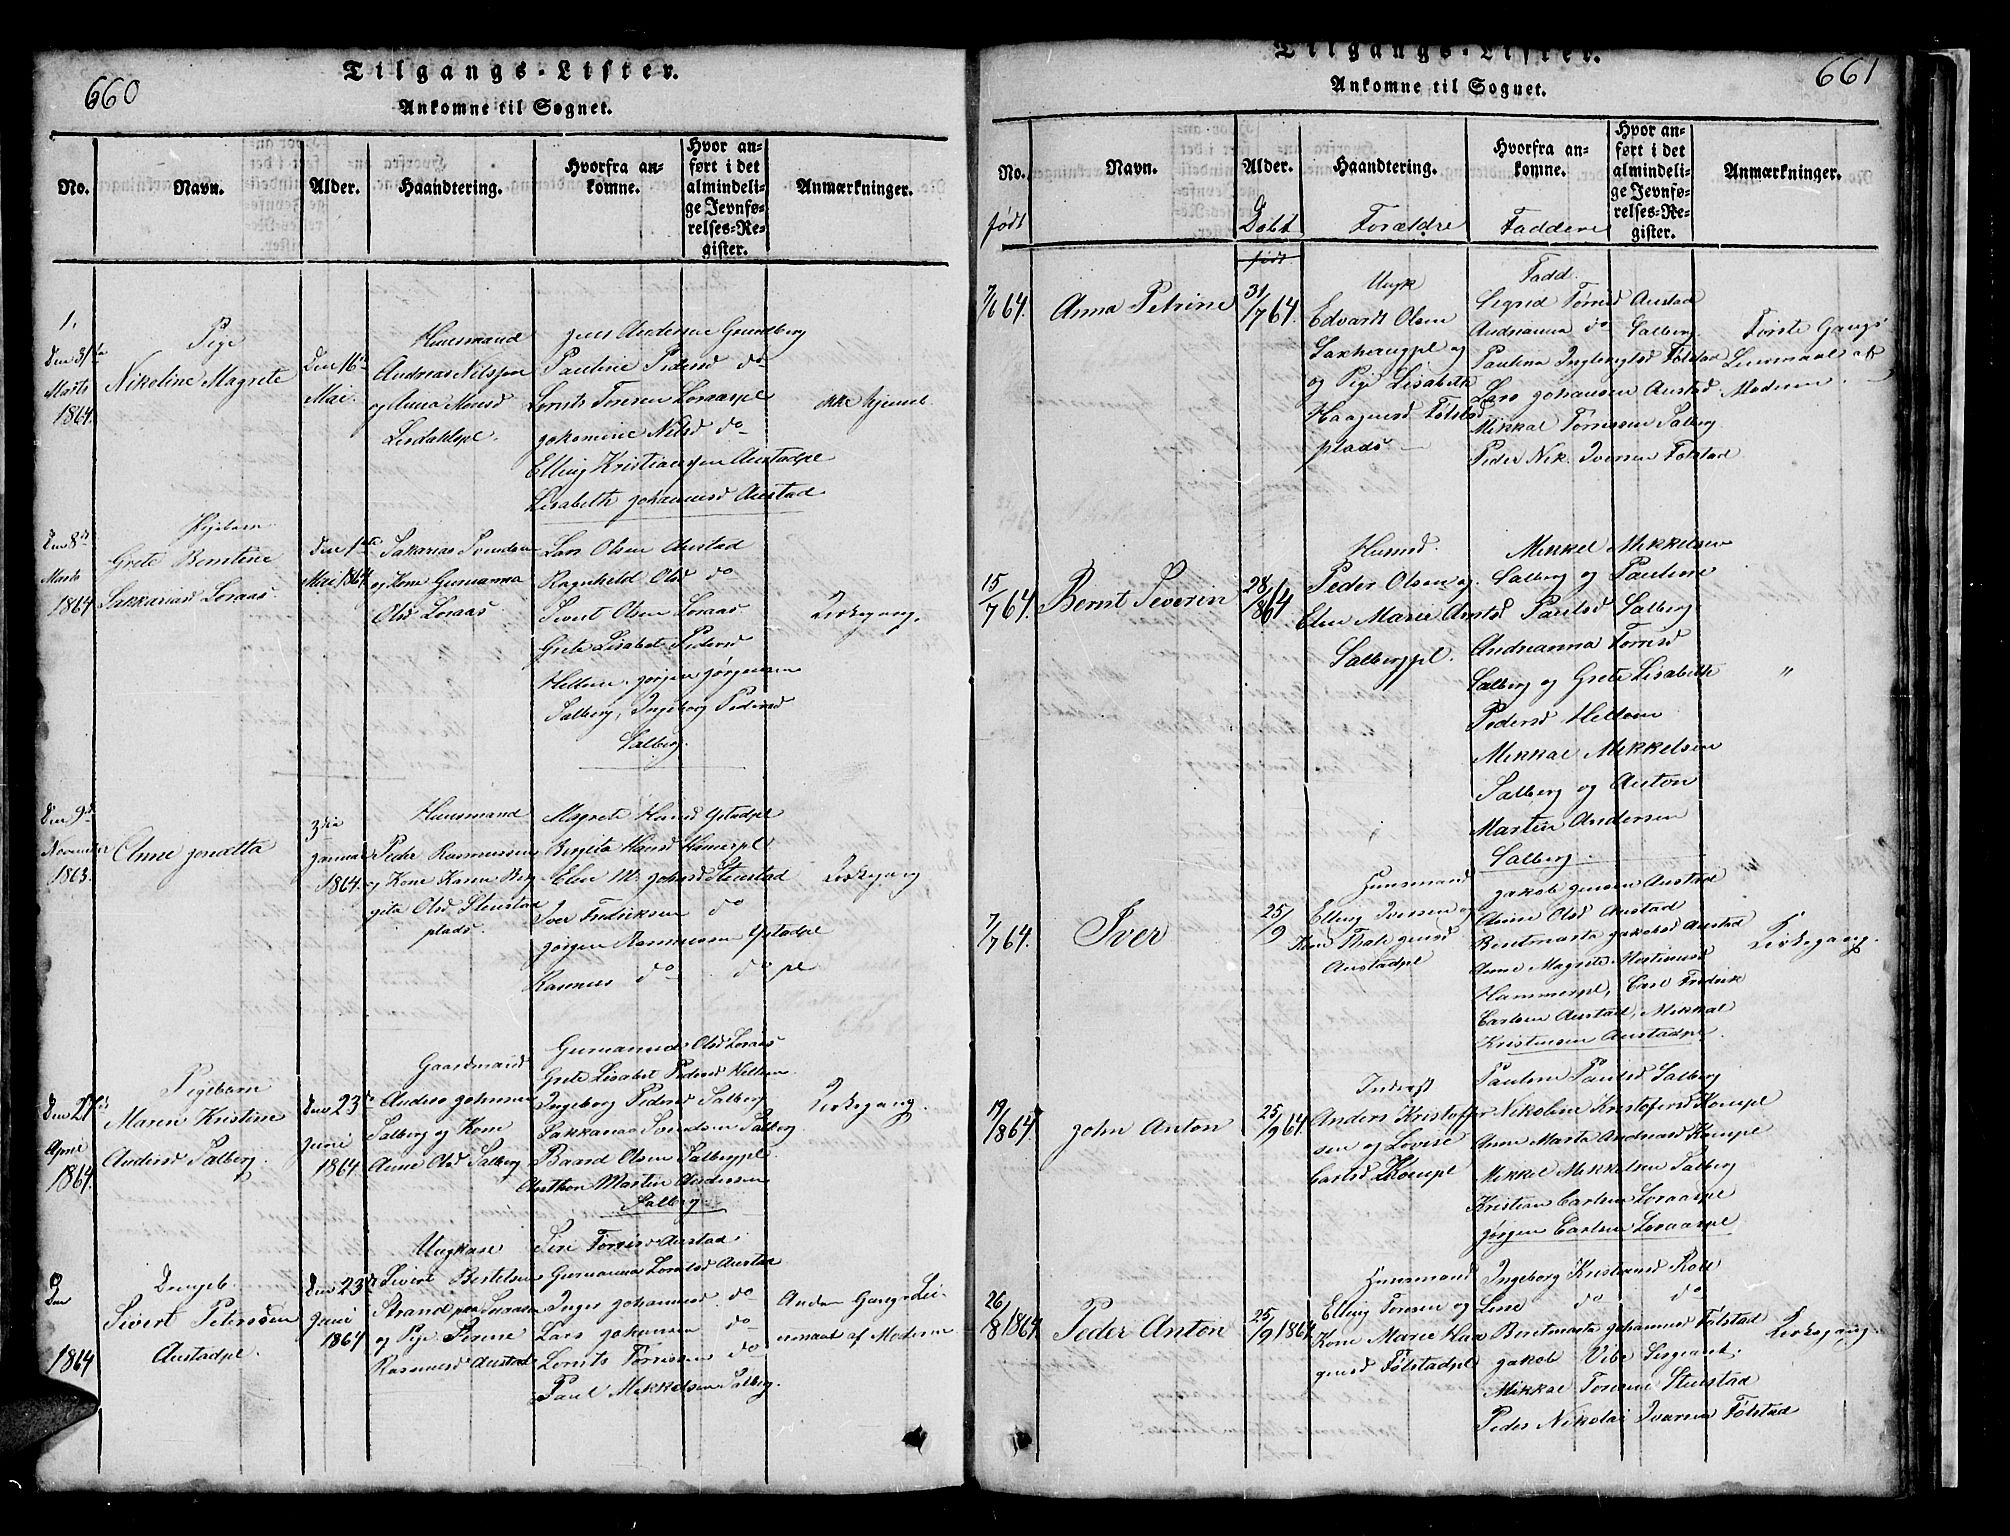 660
Tilgangs-Lister.
Ankomne til Sognet.
No.
Navn.
Alder.
Haandtering.
Hvorfra an-
komne.
Hvor an-
ført i det
almindeli-
ge Jevnfø-
relses-Re-
gister.
Anmærkninger.
1.
Den 31te
Marts
1864.
Pige
Nikoline Magrete
Den 16de
Mai.
Huusmand
Andreas Nilssen
og Anna Monsd
Jens Andersen Grundberg
Pauline Pedersd do
Lornts Toresen Loraaspl
Johannie Nilsd do
Elling Kristiansen Austadpl
Lisabeth Johannesd Austad
ikke hjemd
Den 8de
Marts
1864
Pigebarn
Grete Berntine
Sakkariasd Loraas.
Den 1ste
Mai 1864.
Sakarias Svendsen
og Kone Gurianna
Olsd Loraas
Lars Olsen Austad
Ragnheld Olsd do
Sivert Olsen Loraas
Grete Lisabet Pedersd
Hellem. Jørgen Jørgensen
Salberg, Ingeborg Pedersd
Salberg.
Kirkegang.
Den 9de
November
1863.
Anne Jonetta
3die
Januar
1864.
Huusmand
Peder Rasmussen
og Kone Karen Ber-
gita Olsd Stenstad
plads.
Magrete Hansd Ystadpl
Bergita Hansd Hamerpl
Elen M. Johansd Stenstad
Iver Fredriksen do
Jørgen Rasmussen Ystadpl
Rasmus do do pl
Kirkegang
Den 27de
April
1864.
Pigebarn
Maren Kristine
Andersd Salberg.
Den 23de
Juni
1864
Gaardmand
Anders Johnsen
Salberg og Kone
Anne Olsd Salberg
Gurianna Olsd Loraas
Grete Lisabet Pedersd Hellem
Ingeborg Pedersd Salberg
Sakkarias Svendsen Salberg.
Baard Olsen Salbergpl.
Anthon Martin Andersen
Salberg
Kirkegang.
Den
1864
Drengeb.
Sivert Peterssen
Austadpl.
Den 23de
Juni
1864
Ungkarl
Sivert Bertelsen
Strand
og Pige Serene
Rasmusd Austad
Siri Torrisd Austad
Gurianna Lorntsd Austad
Inger Johannesd do
Lars Johansen do
Lornts Torrissen do
Paul Mikkelsen Salberg.
Anden Gangs Lei-
ermaal af Moderen
661
Tilgangs-Lister.
Ankomne til Sognet.
No.
født
Navn.
Alder.
Døbt
født
Haandtering.
Forældre
Hvorfra an-
komne.
Faddere
Hvor an-
ført i det
almindeli-
ge Jevnfø-
relses-Re-
gister.
Anmærkninger.
7/6 64.
Anna Petrine
31/7 64.
Ungk
Edvardt Olsen
og Pige Lisabeth
Haagensd Følstad
plads
Fadd.
Sigrid Torrisd Austad
Andrianna do Salberg
Paulina Ingbrigtsd Følstad
Lars Johansen Austad
Mikkal Torrissen Salberg
Peder Nik. Iversen Følstad
Første Gangs
Leiermaal af
Moderen.
15/7 64.
Bernt Severin
28/8 64
Huusd.
Peder Olsen og
Elen Marie Arntsd
Salbergpl.
Mikkel Mikkelsen
Salberg og Pauline
Paulsd Salberg
Andrianna Torrisd
Salberg og Grete Lisabeth
Pedersd Hellem
Mikkal Mikkelsen
Salberg og Anton
Martin Andersen
Salberg.
"
7/7 64.
Iver
25/9
Huusmand
Elling Iversen og
Kone Thale Jensd
Austadpl
Jakob Jensen Austad
Anne Olsd Austad
Beritmarta Jakobsd Austad
Anne Magrete Mortinusd
Hammerpl, Carl Fredrik
Carlsen Austad, Mikkal
Kristensen Austadpl.
Kirkegang.
19/8 64.
John Anton
25/9 64.
Inderst
Anders Kristoffer-
sen og Lovise
Carlsd
Pauline Paulsd Salberg
Nikoline Kristofersd
Anne Marta Andreasd
Mikkel Mikkelsen Salberg
Kristian Carlsen Loraaspl
Jørgen Carlsen Loraaspl
26/8 1864.
Peder Anton
25/9 1864.
Huusmand
Elling Toresen og
Kone Marie Haa-
gensd Følstadpl
Ingeborg Kristiansd
Lise do do
Beritmarta Johannesd Følstad
Jakob Vibe Sergeant.
Mikkal Toresen Stenstad
Peder Nikolai Iversen Følstad
Kirkegang